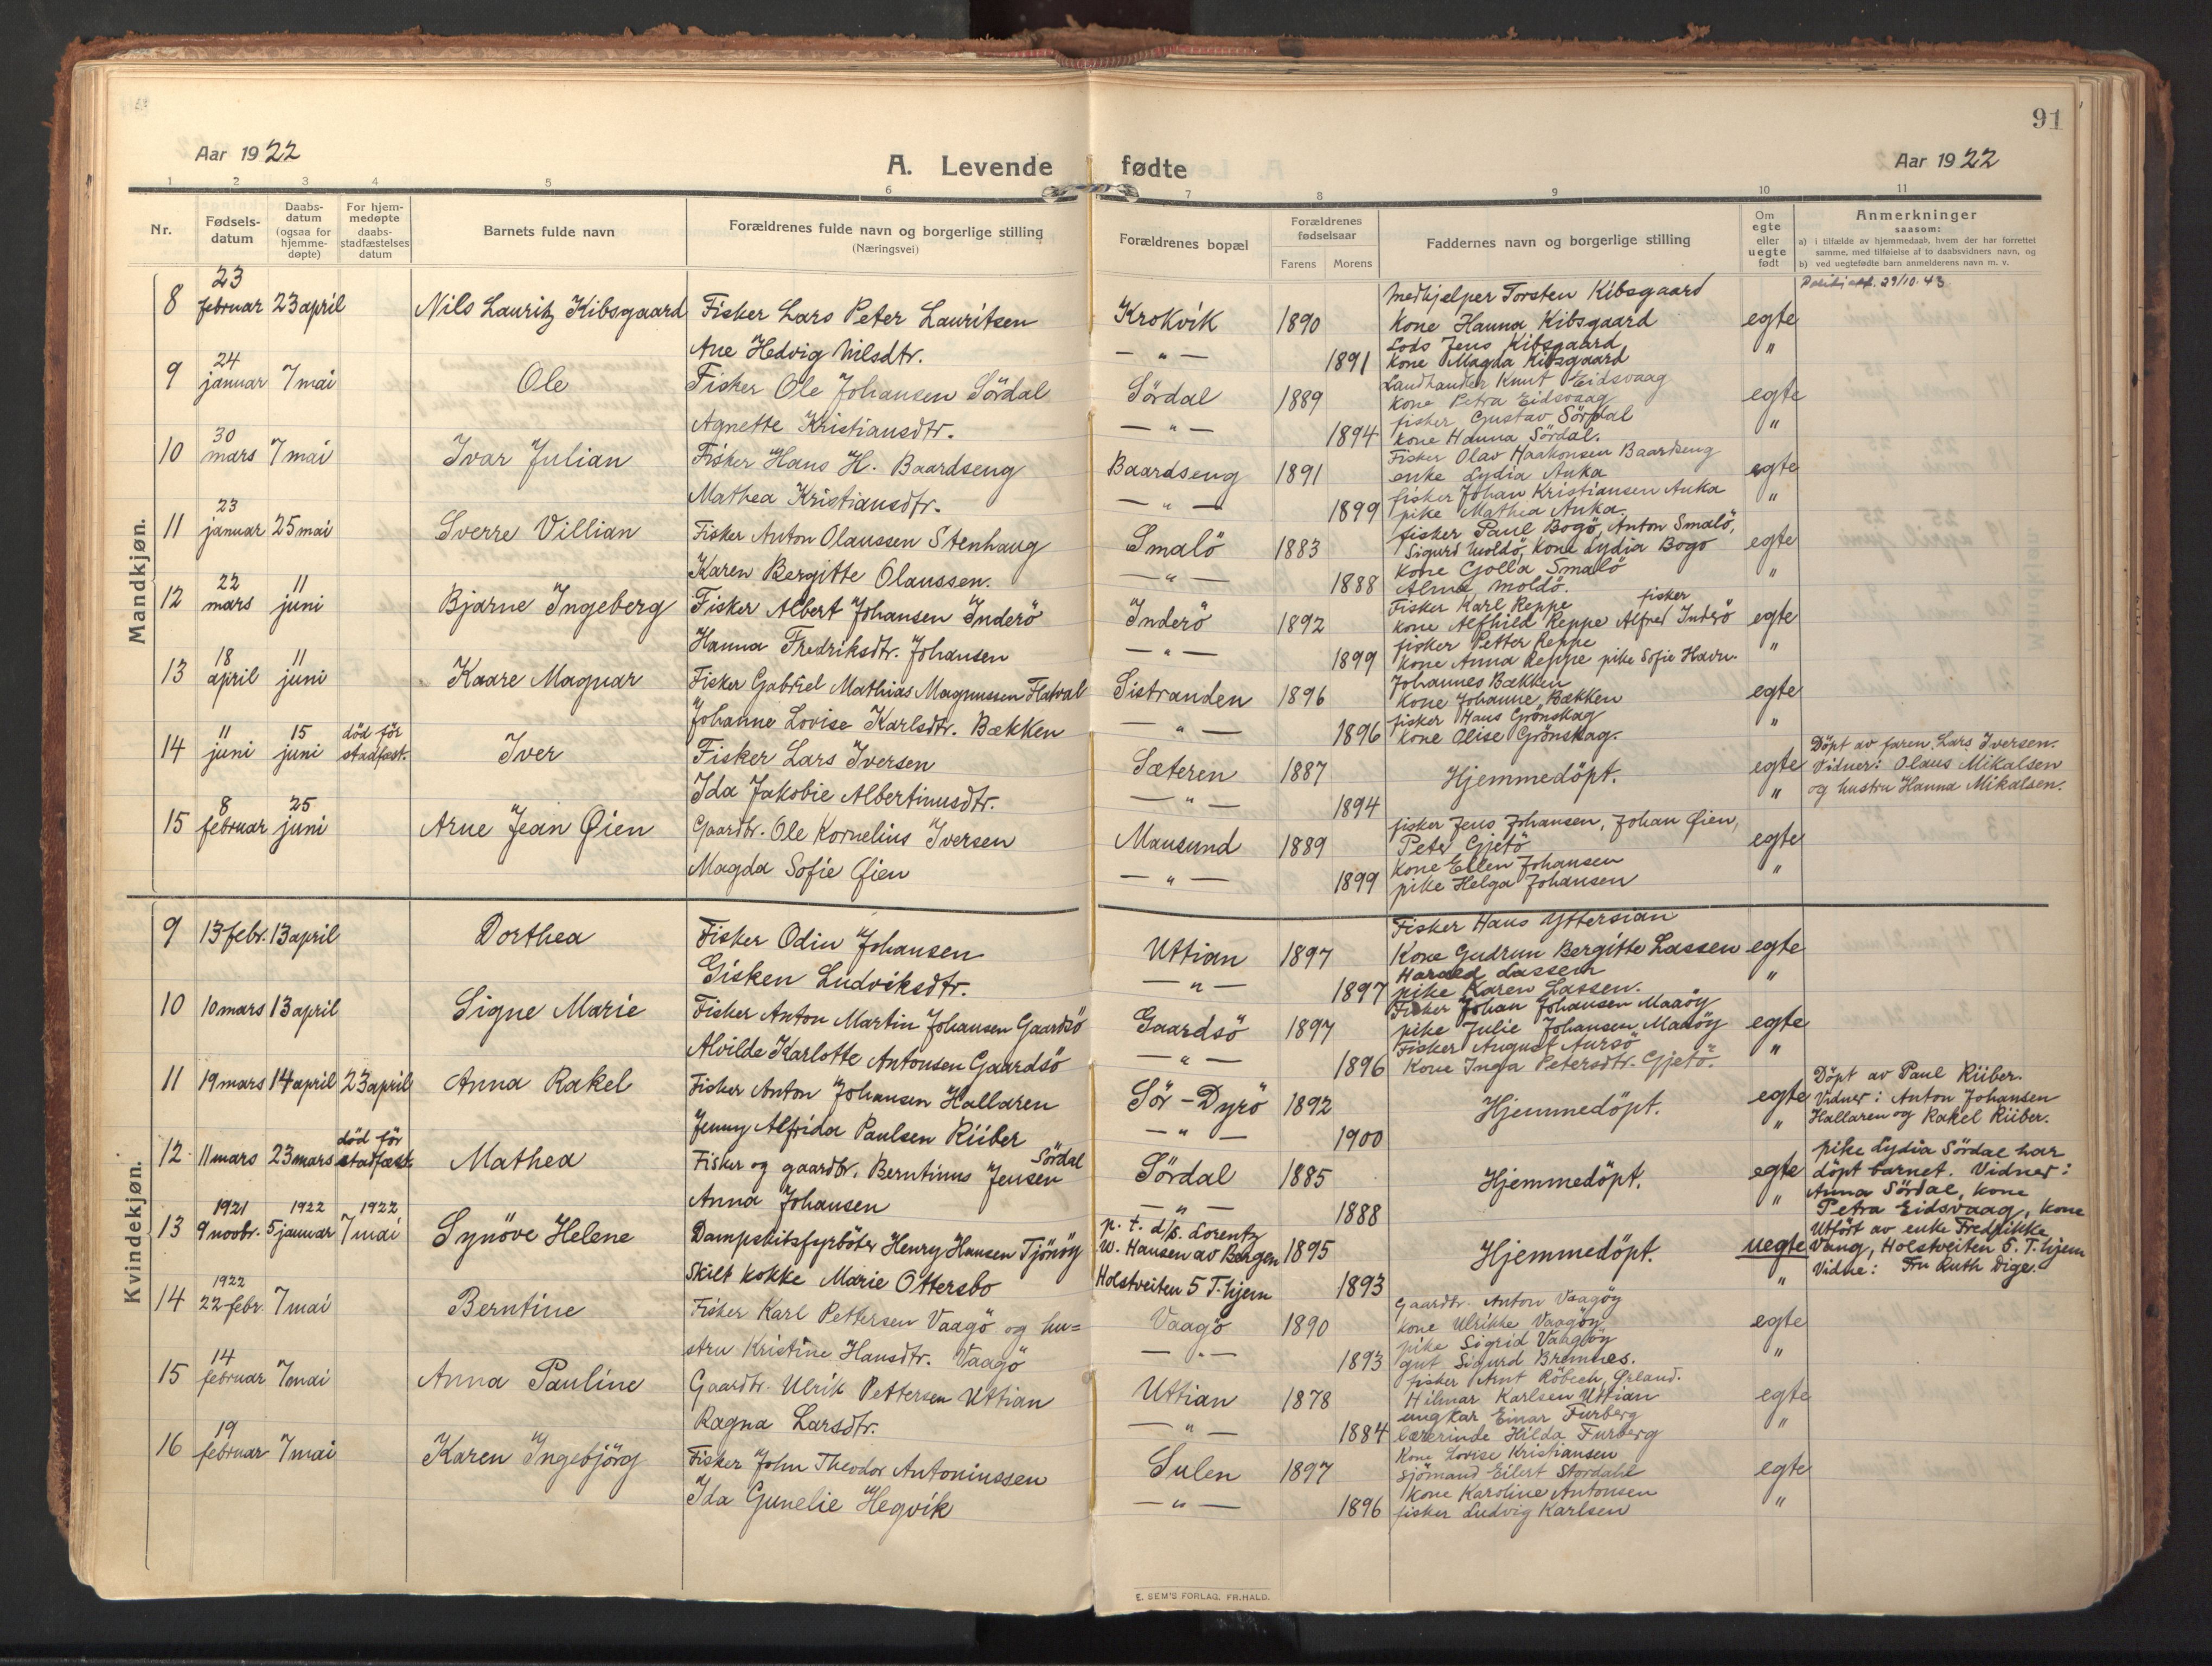 91
Aar 1922
A. Levende fødte
Aar 1922
1 2 3 4 5 6 7 8 9 10 11
Nr.
Fødsels-datum
Daabs-datum (ogsaa for hjemme-døpte)
For hjem-medøpte daabs-stadfæstelses datum
Barnets fulde navn
Forældrenes fulde navn og borgerlige stilling
(Næringsvei)
Forældrenes bopæl
Forældrenes fødselsaar
Farens Morens
Faddernes navn og borgerlige stilling
Om egte eller uegte født
Anmerkninger
saasom:
a) i tilfælde av hjemmedaab, hvem der har forrettet samme, med tilføielse af to daabsvidners navn, og
b) ved uegtefødte barn anmelderens navn m. v.
Mandkjøn.
29/10.43
8 23 februar 23 april Nils Lauritz Kibsgaard Fisker Lars Peter Lauritsen Krokvik 1890 egte
Ane Hedvig Nilsdtr. — " — 1891 "
Medhjelper Torsten Kibsgaard
Kone Hanna Kibsgaard
Lods Jens Kibsgaard
Kone Magda Kibsgaard
9 24 januar 7 mai Ole Fisker Ole Johansen Sördal Sördal 1889 egte
Agnette Kristiansdtr. — " — 1894 "
Landhandler Knut Eidsvaag
Kone Petra Eidsvaag
fisker Gustav Sördal
Kone Hanna Sördal.
10 30 mars 7 mai Ivar Julian Fisker Hans H. Baardseng Baardseng 1891 egte
Mathea Kristiansdtr. — " — 1899 "
Fisker Olav Haakonsen Baardseng
enke Lydia Auka
fisker Johan Kristiansen Auka
pike Mathea Auka.
11 23 januar 25 mai Sverre Villian Fisker Anton Olaussen Stenhaug Smalö 1883 egte
Karen Bergitte Olaussen. — " — 1888 "
fisker Paul Bogö, Anton Smalö,
Sigurd Moldö, Kone Lydia Bogö
Kone Golla Smalö
Alma Moldö.
12 22 mars 11 juni Bjarne Ingeberg Fisker Albert Johansen Inderö Inderö 1892 egte
Hanna Fredriksdtr. Johansen — " — 1899 "
Fisker Karl Reppe fisker
Kone Alfhild Reppe Alfred Inderö
fisker Petter Reppe
Kone Anna Reppe pike Sofie Havn.
13 18 april 11 juni Kaare Magnar Fisker Gabriel Mathias Magnussen Flatval Sistranden 1896 egte
Johanne Lovise Karlsdtr. Bækken — " — 1896 "
Johannes Bækken
Kone Johanne Bækken
fisker Hans Grönskag
Kone Olise Grönskag.
14 11 juni 15 juni död för stadfæst. Iver Fisker Lars Iversen Sæteren 1887 Hjemmedöpt. egte
Ida Jakobie Albertinusdtr. — " — 1894 "
Döpt av faren, Lars Iversen.
Vidner: Olaus Mikalsen
og hustru Hanna Mikalsen.
15 8 februar 25 juni Arne Jean Øien Gaardbr. Ole Kornelius Iversen Mausund 1889 egte
Magda Sofie Øien — " — 1899 "
fisker Jens Johansen, Johan Øien,
Peter Gjetö
Kone Ellen Johansen
pike Helga Johansen
Kvindekjøn.
9 13 febr. 13 april Dorthea Fisker Odin Johansen Uttian 1897 egte
Gisken Ludviksdtr. — " — 1897 "
Fisker Hans Yttersian
Kone Gudrun Bergitte Lassen
Harald Lassen
pike Karen Lassen.
10 10 mars 13 april Signe Marie Fisker Anton Martin Johansen Gaardsö Gaardsö 1897 egte
Alvilde Karlotte Antonsen Gaardsö — " — 1896 "
Fisker Johan Johansen Maaöy
pike Julie Johansen Maaöy
Fisker August Aursö
Kone Inga Petersdtr. Gjetö.
11 19 mars 14 april 23 april Anna Rakel Fisker Anton Johansen Hallaren Sör-Dyrö 1892 Hjemmedöpt. egte
Jenny Alfrida Paulsen Riiber — " — 1900 "
Döpt av Paul Riiber.
Vidner: Anton Johansen
Hallaren og Rakel Riiber.
12 11 mars 23 mars död för stadfæst. Mathea Fisker og gaardbr. Berntinus Jensen Sördal Sördal 1885 Hjemmedöpt. egte
Anna Johansen — " — 1888 "
pike Lydia Sördal har
döpt barnet. Vidner:
Anna Sördal, kone
Petra Eidsvaag, kone
13 1921 9 novbr. 1922 5 januar 1922 7 mai Synöve Helene Dampskibsfyrböter Henry Hansen Tjönöy p. t. d/s. Lorentz W. Hansen av Bergen 1895 Hjemmedöpt. uegte
Skilt kokke Marie Ottersbo Holstveiten 5 T.hjem 1893 "
Utfört av enke Fredrikke
Vang, Holstveiten 5. T.hjem
Vidne: Fru Ruth Dige.
14 1922 22 febr. 7 mai Berntine Fisker Karl Pettersen Vaagö og hu= Vaagö 1890 egte
stru Kristine Hansdtr. Vaagö — " — 1893 "
Gaardbr. Anton Vaagöy
Kone Ulrikke Vaagöy
pike Sigrid Vaagöy
gut Sigurd Bremnes.
15 14 februar 7 mai Anna Pauline Gaardbr. Ulrik Pettersen Uttian Uttian 1878 egte
Ragna Larsdtr. — " — 1884 "
fisker Arnt Röbech, Ørland.
Hilmar Karlsen Uttian
ungkar Einar Furberg
lærerinde Hilda Furberg
16 19 februar 7 mai Karen Ingebjörg Fisker John Theodor Antoniussen Sulen 1897 egte
Ida Gunelie Hegvik — " — 1896 "
Kone Lovise Kristiansen
Sjömand Eilert Stordahl
Kone Karoline Antonsen
fisker Ludvig Karlsen
E. SEM'S FORLAG, FR.HALD.